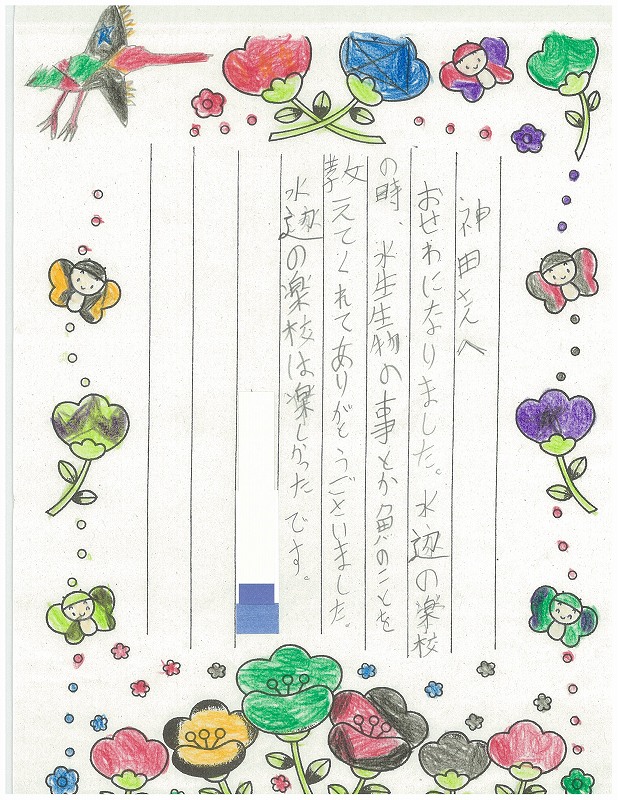 神田さんへ
おせわになりました。水辺の楽校
の時、水生生物の事とか魚のことを
教えてくれてありがとうございました。
水辺の楽校は楽しかったです。